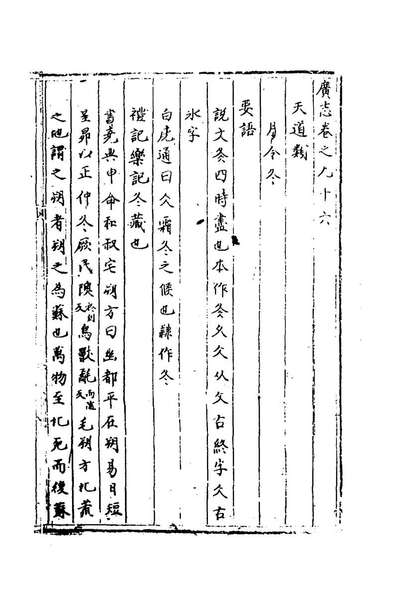 廣志卷之九十六
天道數
月令冬
要語
說文冬四時盡也本作冬夂仌从夂古終字仌古
氷字
白虎通曰仌霜冬之候也隸作冬
禮記樂記冬藏也
書堯典申命和叔宅朔方曰幽都平在朔易日短
星昴以正仲冬厥民隩於到反鳥獸氄而遄反毛朔方北荒
之地謂之朔者朔之為蘇也萬物至北死而後蘇